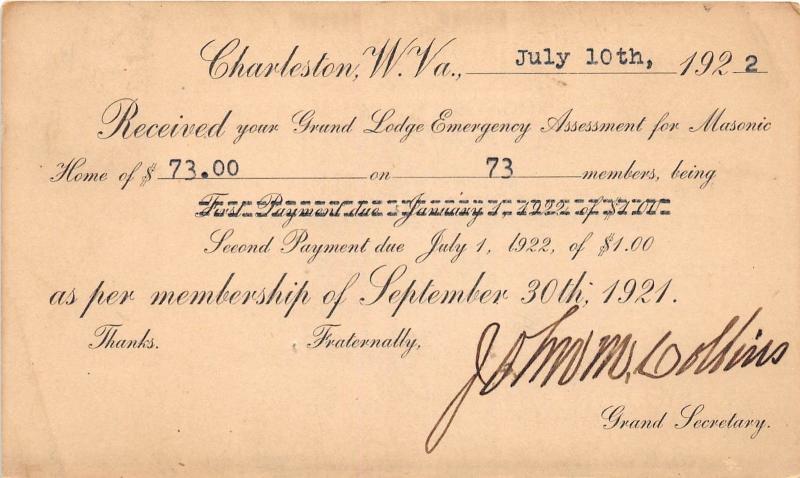 Charleston, W. Va., July 10th, 1922
Received your Grand Lodge Emergency Assessment for Masonic
Home of $ 73.00 on 73 members, being
First Payment due January 1, 1922 of $1.00
Second Payment due July 1, 1922, of $1.00
as per membership of September 30th, 1921.
Thanks. Fraternally,
John M. Collins
Grand Secretary.